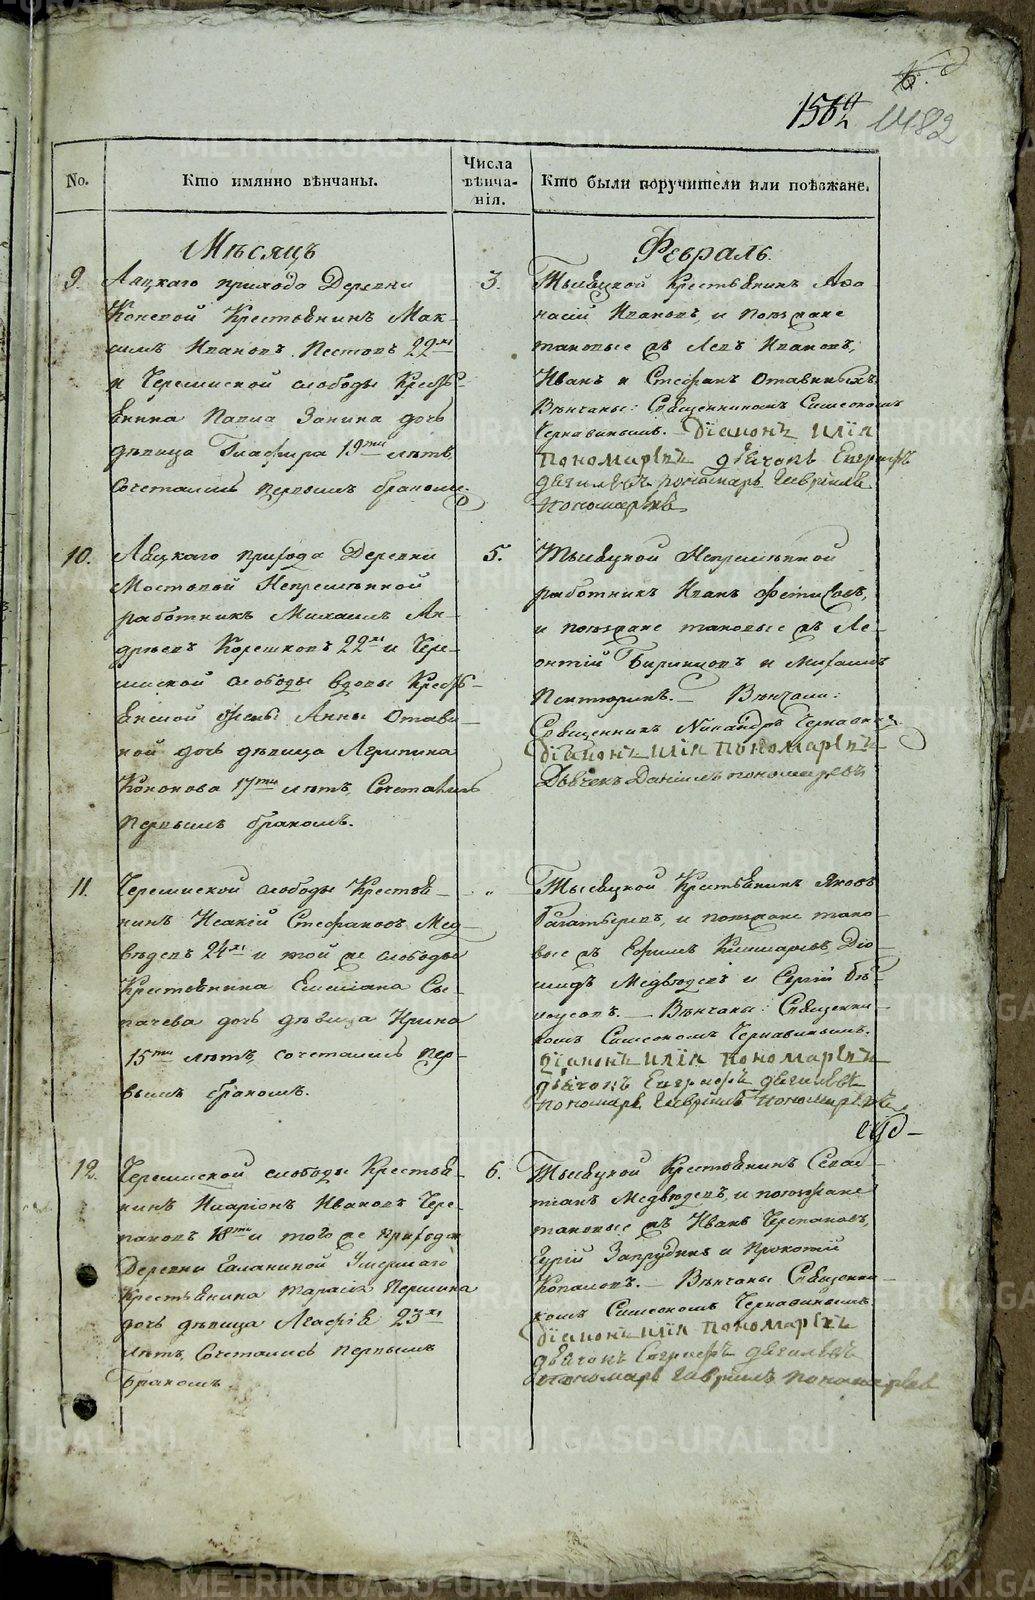 156 1482
No. Кто имянно вѣнчаны. Числа вѣнча- нія. Кто были поручители или поѣзжане.
Мѣсяцъ Февраль.
9. прихода Деревни
Коневой Крестьянинъ Мак-
симъ Ивановъ Пестовъ 22хъ
и Черемиской слободы Кресть-
янина Павла Занина дочь
дѣвица Глафира 19ти лѣтъ
Сочетались первымъ бракомъ.
3. Крестьянинъ Аѳа-
насій Ивановъ, и поѣзжане
таковые жъ Левъ Ивановъ,
Иванъ и Стефанъ
Вѣнчаны: Священникомъ Симеономъ
Чернавинымъ. Діаконъ Илія
пономаревъ дьячокъ Евграфъ
пономарь Гавріилъ
пономаревъ
10. прихода Деревни
Мостовой Непремѣнной
работникъ Михаилъ Ан-
дреевъ Корешковъ 22хъ и Чере-
миской слободы вдовы Кресть-
янской жены Анны
ной дочь дѣвица Агрипина
Кононова 17ти лѣтъ, Сочетались
первымъ бракомъ.
5. Непремѣнной
работникъ Иванъ Фетисовъ,
и поѣзжане таковые жъ Ле-
онтій и Михаилъ
Вѣнчали:
Священникъ Никандръ Чернавинъ
Діаконъ Илія пономаревъ
Дьячекъ Даніилъ пономаревъ
11. Черемиской слободы Крестья-
нинъ Исакій Стефановъ Мед-
вѣдевъ 24хъ и той же слободы
Крестьянина Емельяна
дочь дѣвица Ирина
15ти лѣтъ, сочетались пер-
вымъ бракомъ.
" Крестьянинъ Яковъ
и поѣзжане тако-
вые жъ Ефимъ Діо-
мидъ Медвѣдевъ и Сергій Бѣ-
лоусовъ. Вѣнчаны: Священни-
комъ Симеономъ Чернавинымъ.
Діаконъ Илія пономаревъ
дьячокъ Евграфъ
пономарь Гавріилъ пономаревъ
12. Черемиской слободы Крестья-
нинъ Иларіонъ Ивановъ Чере-
пановъ 18ти и того же прихода
Деревни Галаниной Умершаго
Крестьянина Тараса Першина
дочь дѣвица Агафія 23хъ
лѣтъ, Сочетались первымъ
бракомъ.
6. Крестьянинъ Севас-
тіанъ Медвѣдевъ, и поѣзжане
таковые жъ Иванъ Черепановъ,
Гурій Запрудинъ и Прокопій
Вѣнчаны Священни-
комъ Симеономъ Чернавинымъ
Діаконъ Илія пономаревъ
дьячокъ Евграфъ
пономарь Гавріилъ пономаревъ
METRIKI.GASO-URAL.RU